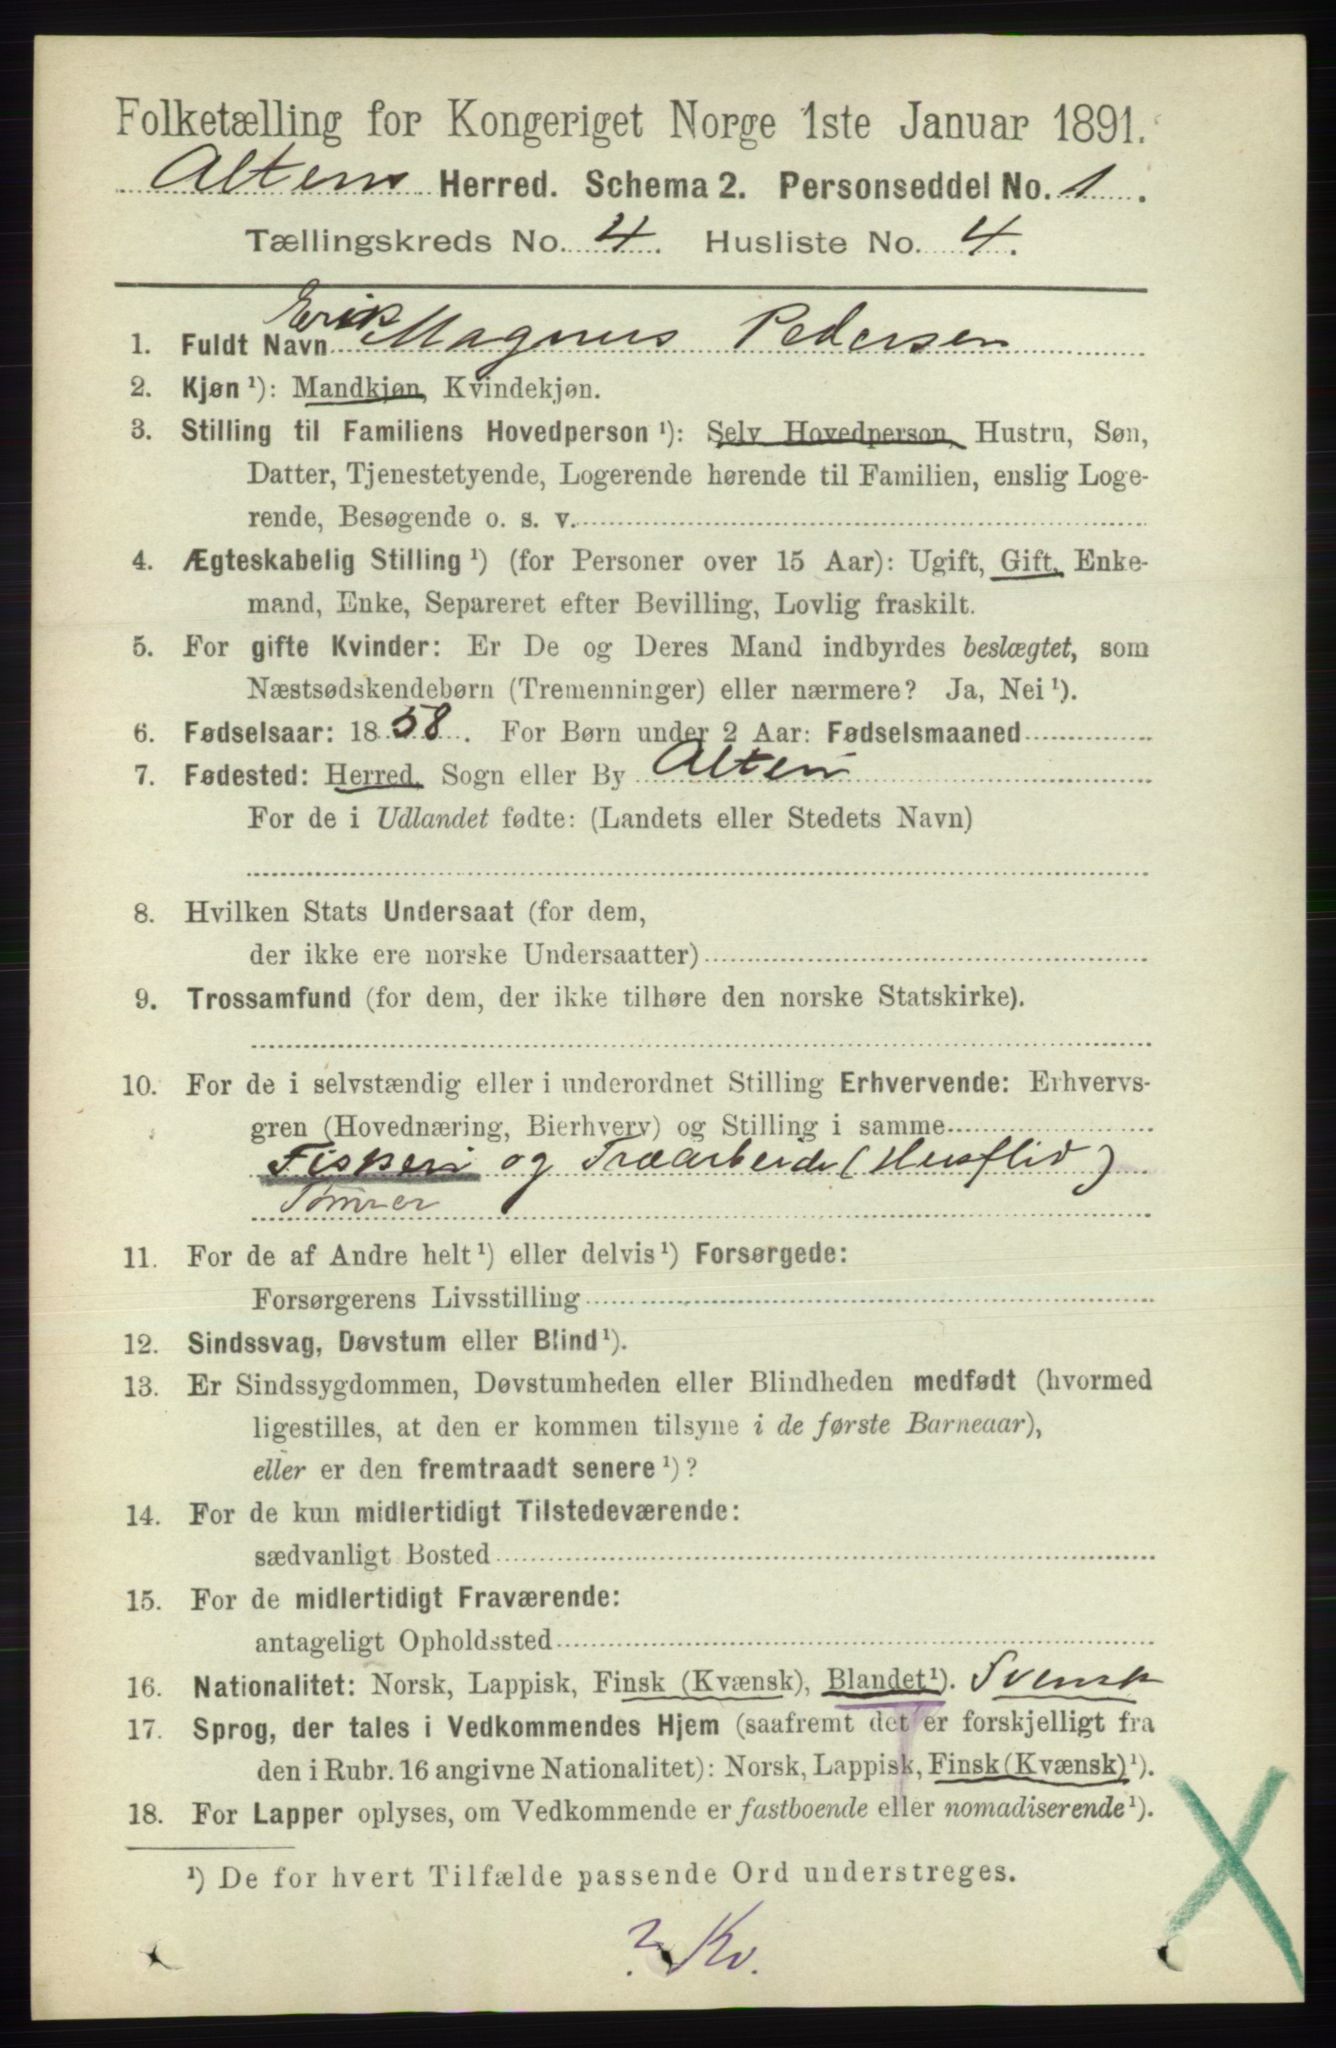 Folketælling for Kongeriget Norge 1ste Januar 1891.
Altens Herred. Schema 2. Personseddel No. 1.
Tællingskreds No. 4. Husliste No. 4.
1. Fuldt Navn Erik Magnus Pedersen
2. Kjøn ¹): Mandkjøn, Kvindekjøn.
3. Stilling til Familiens Hovedperson ¹): Selv Hovedperson, Hustru, Søn,
Datter, Tjenestetyende, Logerende hørende til Familien, enslig Loge-
rende, Besøgende o. s. v.
4. Ægteskabelig Stilling ¹) (for Personer over 15 Aar): Ugift, Gift, Enke-
mand, Enke, Separeret efter Bevilling, Lovlig fraskilt.
5. For gifte Kvinder: Er De og Deres Mand indbyrdes beslægtet, som
Næstsødskendebørn (Tremenninger) eller nærmere? Ja, Nei ¹).
6. Fødselsaar: 1858. For Børn under 2 Aar: Fødselsmaaned
7. Fødested: Herred, Sogn eller By Alten
For de i Udlandet fødte: (Landets eller Stedets Navn)
8. Hvilken Stats Undersaat (for dem,
der ikke ere norske Undersaatter)
9. Trossamfund (for dem, der ikke tilhøre den norske Statskirke).
10. For de i selvstændig eller i underordnet Stilling Erhvervende: Erhvervs-
gren (Hovednæring, Bierhverv) og Stilling i samme
Fiskeri og Træarbeide (Husflid)
Tømrer
11. For de af Andre helt ¹) eller delvis ¹) Forsørgede:
Forsørgerens Livsstilling
12. Sindssvag, Døvstum eller Blind ¹).
13. Er Sindssygdommen, Døvstumheden eller Blindheden medfødt (hvormed
ligestilles, at den er kommen tilsyne i de første Barneaar),
eller er den fremtraadt senere ¹)?
14. For de kun midlertidigt Tilstedeværende:
sædvanligt Bosted
15. For de midlertidigt Fraværende:
antageligt Opholdssted
16. Nationalitet: Norsk, Lappisk, Finsk (Kvænsk), Blandet ¹). Svensk
17. Sprog, der tales i Vedkommendes Hjem (saafremt det er forskjelligt fra
den i Rubr. 16 angivne Nationalitet): Norsk, Lappisk, Finsk (Kvænsk) ¹).
18. For Lapper oplyses, om Vedkommende er fastboende eller nomadiserende ¹).
¹) De for hvert Tilfælde passende Ord understreges.
? Kv.